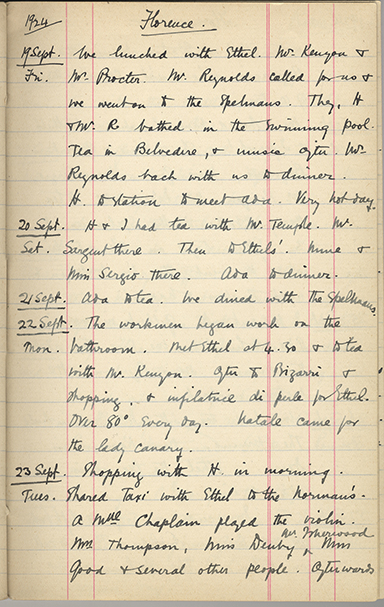 1924 Florence.
19 Sept. We lunched with Ethel. Mr. Kenyon &
Fri. Mr. Procter. Mr. Reynolds called for us &
we went on to the Spelmans. They, H
& Mr. R bathed in the swimming pool.
Tea in Belvedere, & music after. Mr.
Reynolds back with us to dinner.
H. to station to meet Ada. Very hot day.
20 Sept. H & I had tea with Mr. Temple. Mr.
Sat. Sargent there. Then to Ethel's. Mme &
Miss Sergio there. Ada to dinner.
21 Sept. Ada to tea. We dined with the Spelmans.
22 Sept. The workmen began work on the
Mon. bathroom. Met Ethel at 4.30 & to tea
with Mr. Kenyon. After to Bizarri &
shopping, & infilatrice di perle for Ethel.
Over 80° every day. Natale came for
the lady canary.
23 Sept. Shopping with H. in morning.
Tues. Shared taxi with Ethel to the Norman's.
A Mlle Chaplain played the violin.
Mrs Thompson, Miss Denby, Mr. Isherwood, Miss
Good & several other people. Afterwards